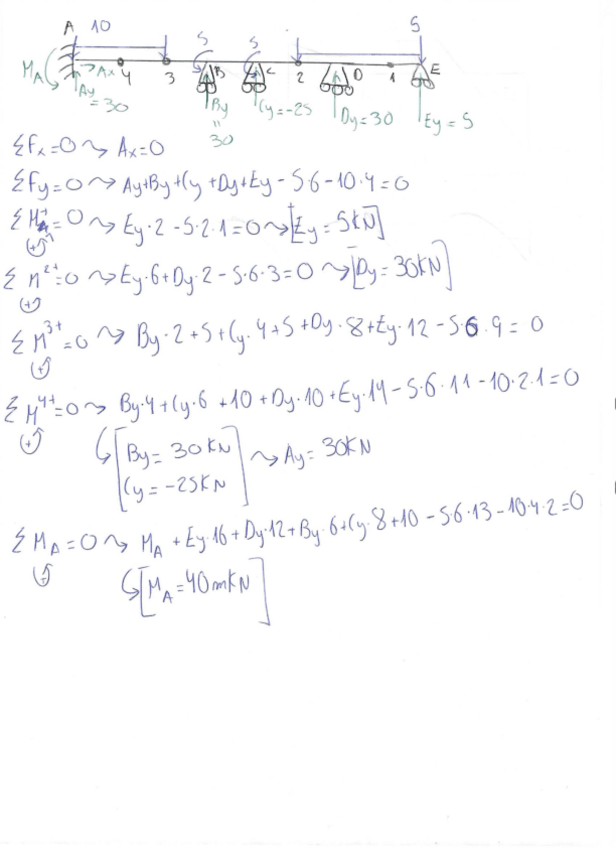 A 10 S S S
M_A Ax 4 3 B C 2 D 1 E
Ay = 30 By = 30 Cy = -25 Dy = 30 Ey = 5
ΣFx=0 ⤳ Ax=0
ΣFy=0 ⤳ Ay+By+Cy+Dy+Ey - 5·6 - 10·4 = 0
=0 ⤳ Ey·2 - 5·2·1=0 ⤳ [Ey = 5kN]
ΣM²⁺=0 ⤳ Ey·6+Dy·2 - 5·6·3=0 ⤳ [Dy = 30KN]
ΣM³⁺=0 ⤳ By·2+5+Cy·4+5+Dy·8+Ey·12 - 5·6·9 = 0
ΣM⁴⁺=0 ⤳ By·4+Cy·6+10+Dy·10+Ey·14 - 5·6·11 - 10·2·1=0
[By = 30KN ⤳ Ay = 30KN
Cy = -25KN]
ΣM_A=0 ⤳ M_A + Ey·16+Dy·12+By·6+Cy·8+10 - 5·6·13 - 10·4·2=0
[M_A=40mKN]